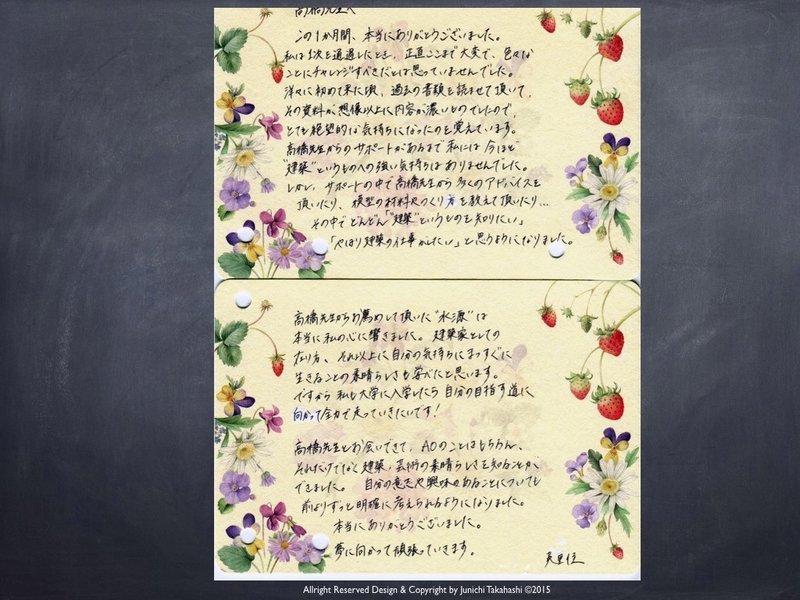 高橋先生へ
この1か月間、本当にありがとうございました。
私は1次を通過したとき、正直ここまで大変で、色々な
ことにチャレンジすべきだとは思っていませんでした。
洋々に初めて来た頃、過去の書類を読ませて頂いて、
その資料が想像以上に内容が濃いものでしたので、
とても絶望的な気持ちになったのを覚えています。
高橋先生からのサポートがあるまで私には今ほど
"建築"というものへの強い気持ちはありませんでした。
しかし、サポートの中で高橋先生から多くのアドバイスを
頂いたり、模型の材料やつくり方を教えて頂いたり…
その中でどんどん「"建築"というものを知りたい」
「やはり建築の仕事がしたい」と思うようになりました。
高橋先生からお薦めして頂いた"水源"は
本当に私の心に響きました。建築家としての
在り方、それ以上に自分の気持ちにまっすぐに
生きることの素晴らしさも学べたと思います。
ですから私も大学に入学したら自分の目指す道に
向かって全力で走っていきたいです!
高橋先生とお会いできて、AOのことはもちろん、
それだけでなく建築、芸術の素晴らしさを知ることが
できました。自分の意志や興味のあることについても
前よりずっと明確に考えられるようになりました。
本当にありがとうございました。
夢に向かって頑張っていきます。
Allright Reserved Design & Copyright by Junichi Takahashi ©2015